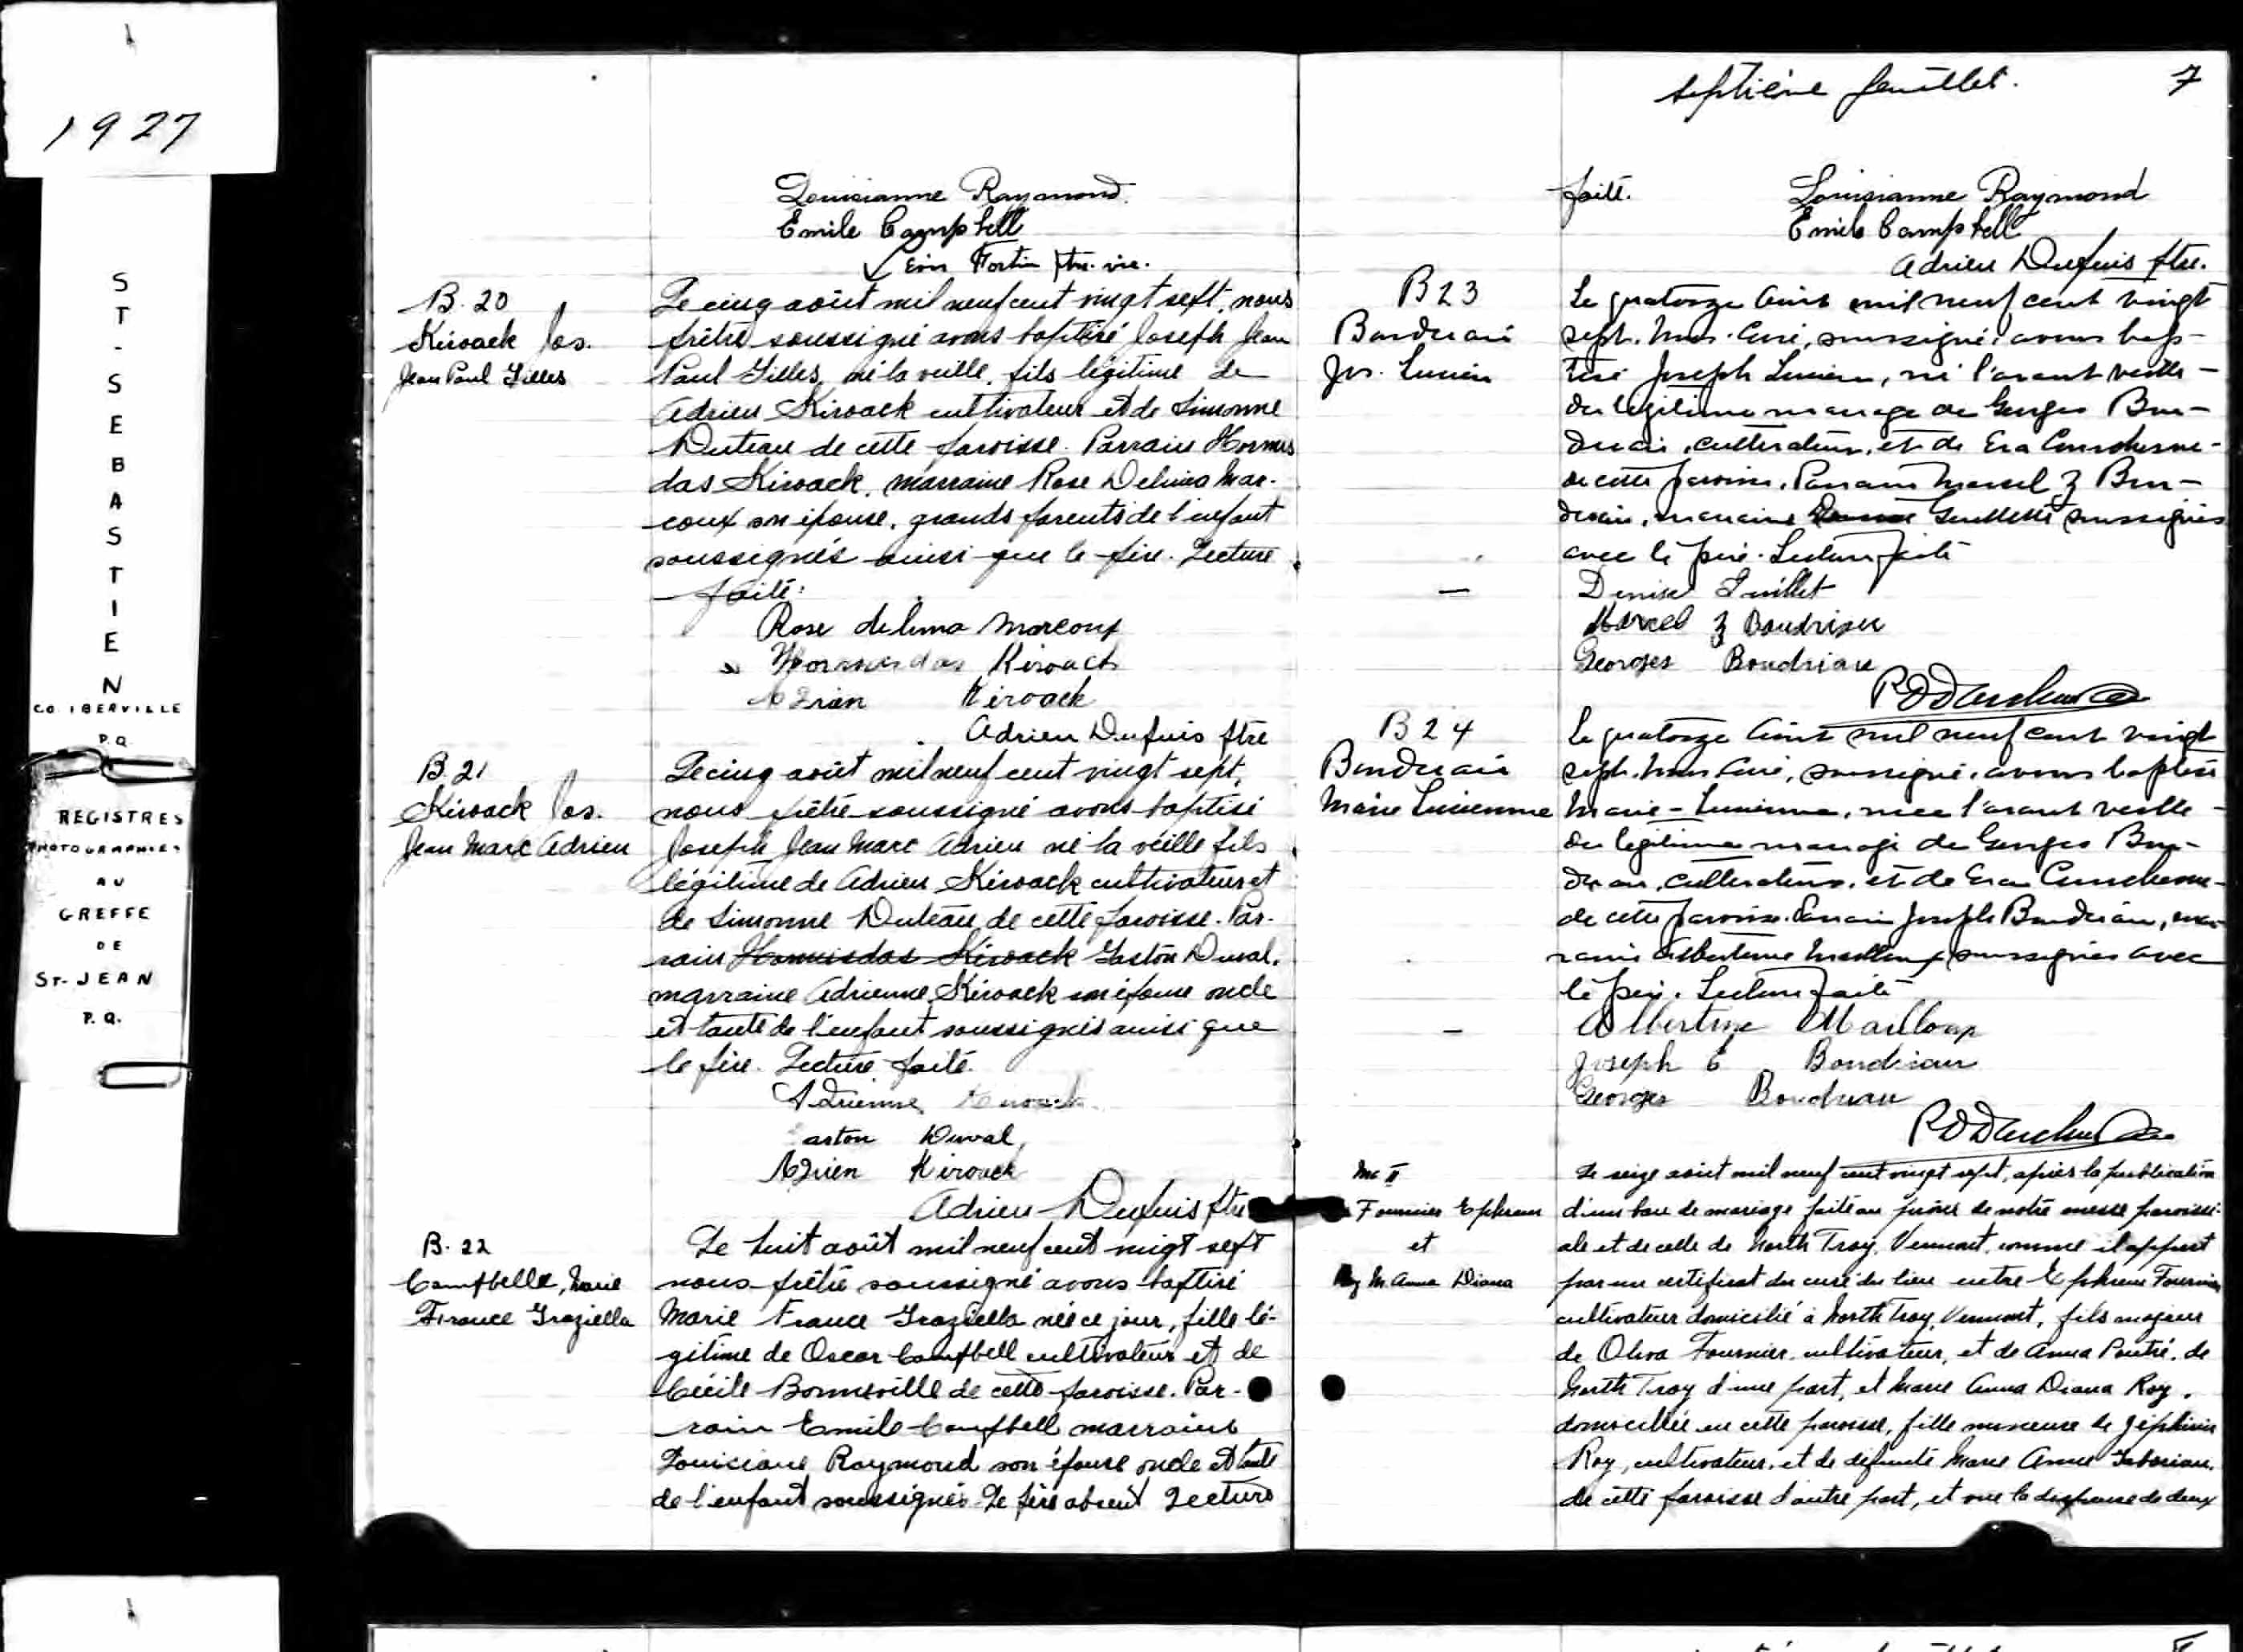 1927
ST-SEBASTIEN
CO. IBERVILLE
P.Q.
REGISTRES
PHOTOGRAPHIES
AU
GREFFE
DE
ST-JEAN
P.Q.
Louisianne Raymond
Emile Campbell
Léon Fortin ptre. vic.
B. 20
Kirouack Jos.
Jean Paul Gilles
Le cinq août mil neuf cent vingt sept, nous
prêtre soussigné avons baptisé Joseph Jean
Paul Gilles, né la veille, fils légitime de
Adrien Kirouack cultivateur et de Simonne
Duteau de cette paroisse. Parrain Hormis
das Kirouack, marraine Rose Delima Mar-
coux son épouse, grands parents de l'enfant
soussignés ainsi que le père. Lecture
faite.
Rose delima Marcoux
Hormisdas Kirouack
Adrien Kirouack
Adrien Dupuis ptre
B. 21
Kirouack Jos.
Jean Marc Adrien
Le cinq août mil neuf cent vingt sept,
nous prêtre soussigné avons baptisé
Joseph Jean Marc Adrien né la veille fils
légitime de Adrien Kirouack cultivateur et
de Simonne Duteau de cette paroisse. Par-
rain Hormisdas Kirouack Gaston Duval,
marraine Adrienne Kirouack son épouse oncle
et tante de l'enfant soussignés ainsi que
le père. Lecture faite.
Adrienne Kirouack
Gaston Duval,
Adrien Kirouack
Adrien Dupuis ptre
B. 22
Campbelle, Marie
France Graziella
Le huit août mil neuf cent vingt sept
nous prêtre soussigné avons baptisé
Marie France Graziella née ce jour, fille lé-
gitime de Oscar Campbell cultivateur et de
Cécile Bonneville de cette paroisse. Par-
rain Emile Campbell marraine
Louisiane Raymond son épouse oncle et tante
de l'enfant soussignés. Le père absent Lecture
septième feuillet. 7
faite. Louisianne Raymond
Emile Campbell
Adrien Dupuis ptre.
B 23
Boudreau
Jos. Lucien
Le quatorze Août mil neuf cent vingt
sept. Nous. Curé, soussigné, avons bap-
tisé Joseph Lucien, né l'avant veille -
du légitime mariage de Georges Bou-
dreau, cultivateur, et de Eva
de cette paroisse. Parrain Marcel Z Bou-
dreau, marraine Denise Ouellette soussignés
avec le père. Lecture faite
Denise
Marcel Z Boudreau
Georges Boudreau
B 24
Boudreau
Marie Lucienne
Le quatorze Août mil neuf cent vingt
sept. Nous Curé, soussigné, avons baptisé
Marie-Lucienne, née l'avant veille -
du légitime mariage de Georges Bou-
dreau, cultivateur, et de Eva
de cette paroisse. Parrain Joseph Boudreau, mar-
raine Albertine Mailloux soussignés avec
le père. Lecture faite
Albertine Mailloux
Joseph E Boudreau
Georges Boudreau
M II
Fournier Ephrem
et
Roy M. Anna Diana
Le seize août mil neuf cent vingt sept, après la publication
d'un ban de mariage faite au prône de notre messe paroissi-
ale et de celle de North Troy, Vermont, comme il appert
par un certificat du curé du lieu entre Ephrem Fournier
cultivateur domicilié à North Troy, Vermont, fils majeur
de Oliva Fournier, cultivateur, et de Anna Poutré, de
North Troy d'une part, et Marie Anna Diana Roy,
domiciliée en cette paroisse, fille mineure de Zéphirin
Roy, cultivateur, et de défunte Marie Anne Taboriau,
de cette paroisse d'autre part, et vue la dispense de deux